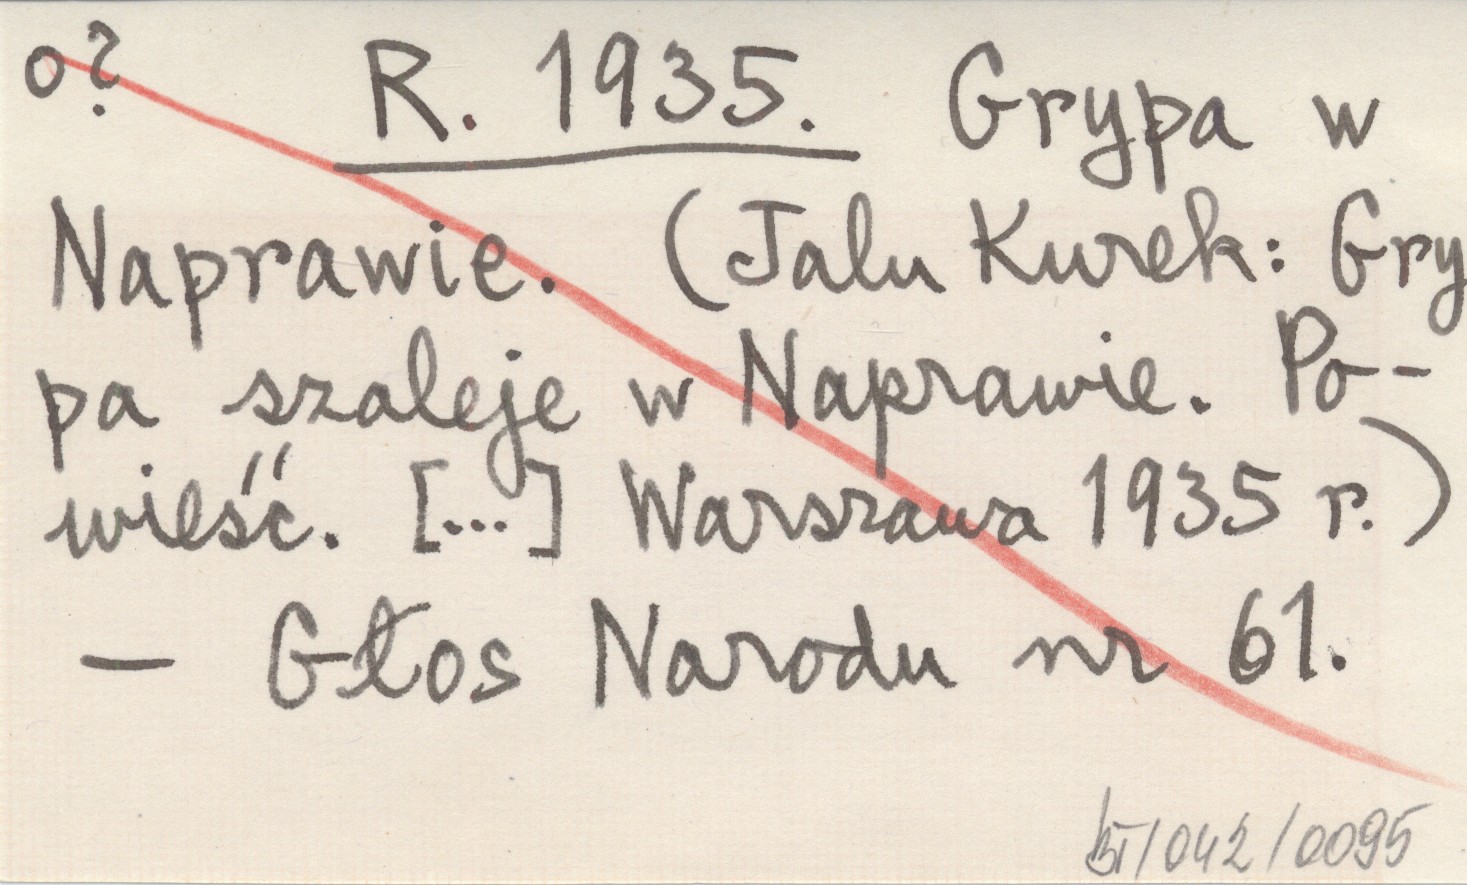 o? R. 1935. Grypa w
Naprawie. (Jalu Kurek: Gry
pa szaleje w Naprawie. Po-
wieść. [...] Warszawa 1935 r.)
— Głos Narodu nr 61.
BT/042/0095